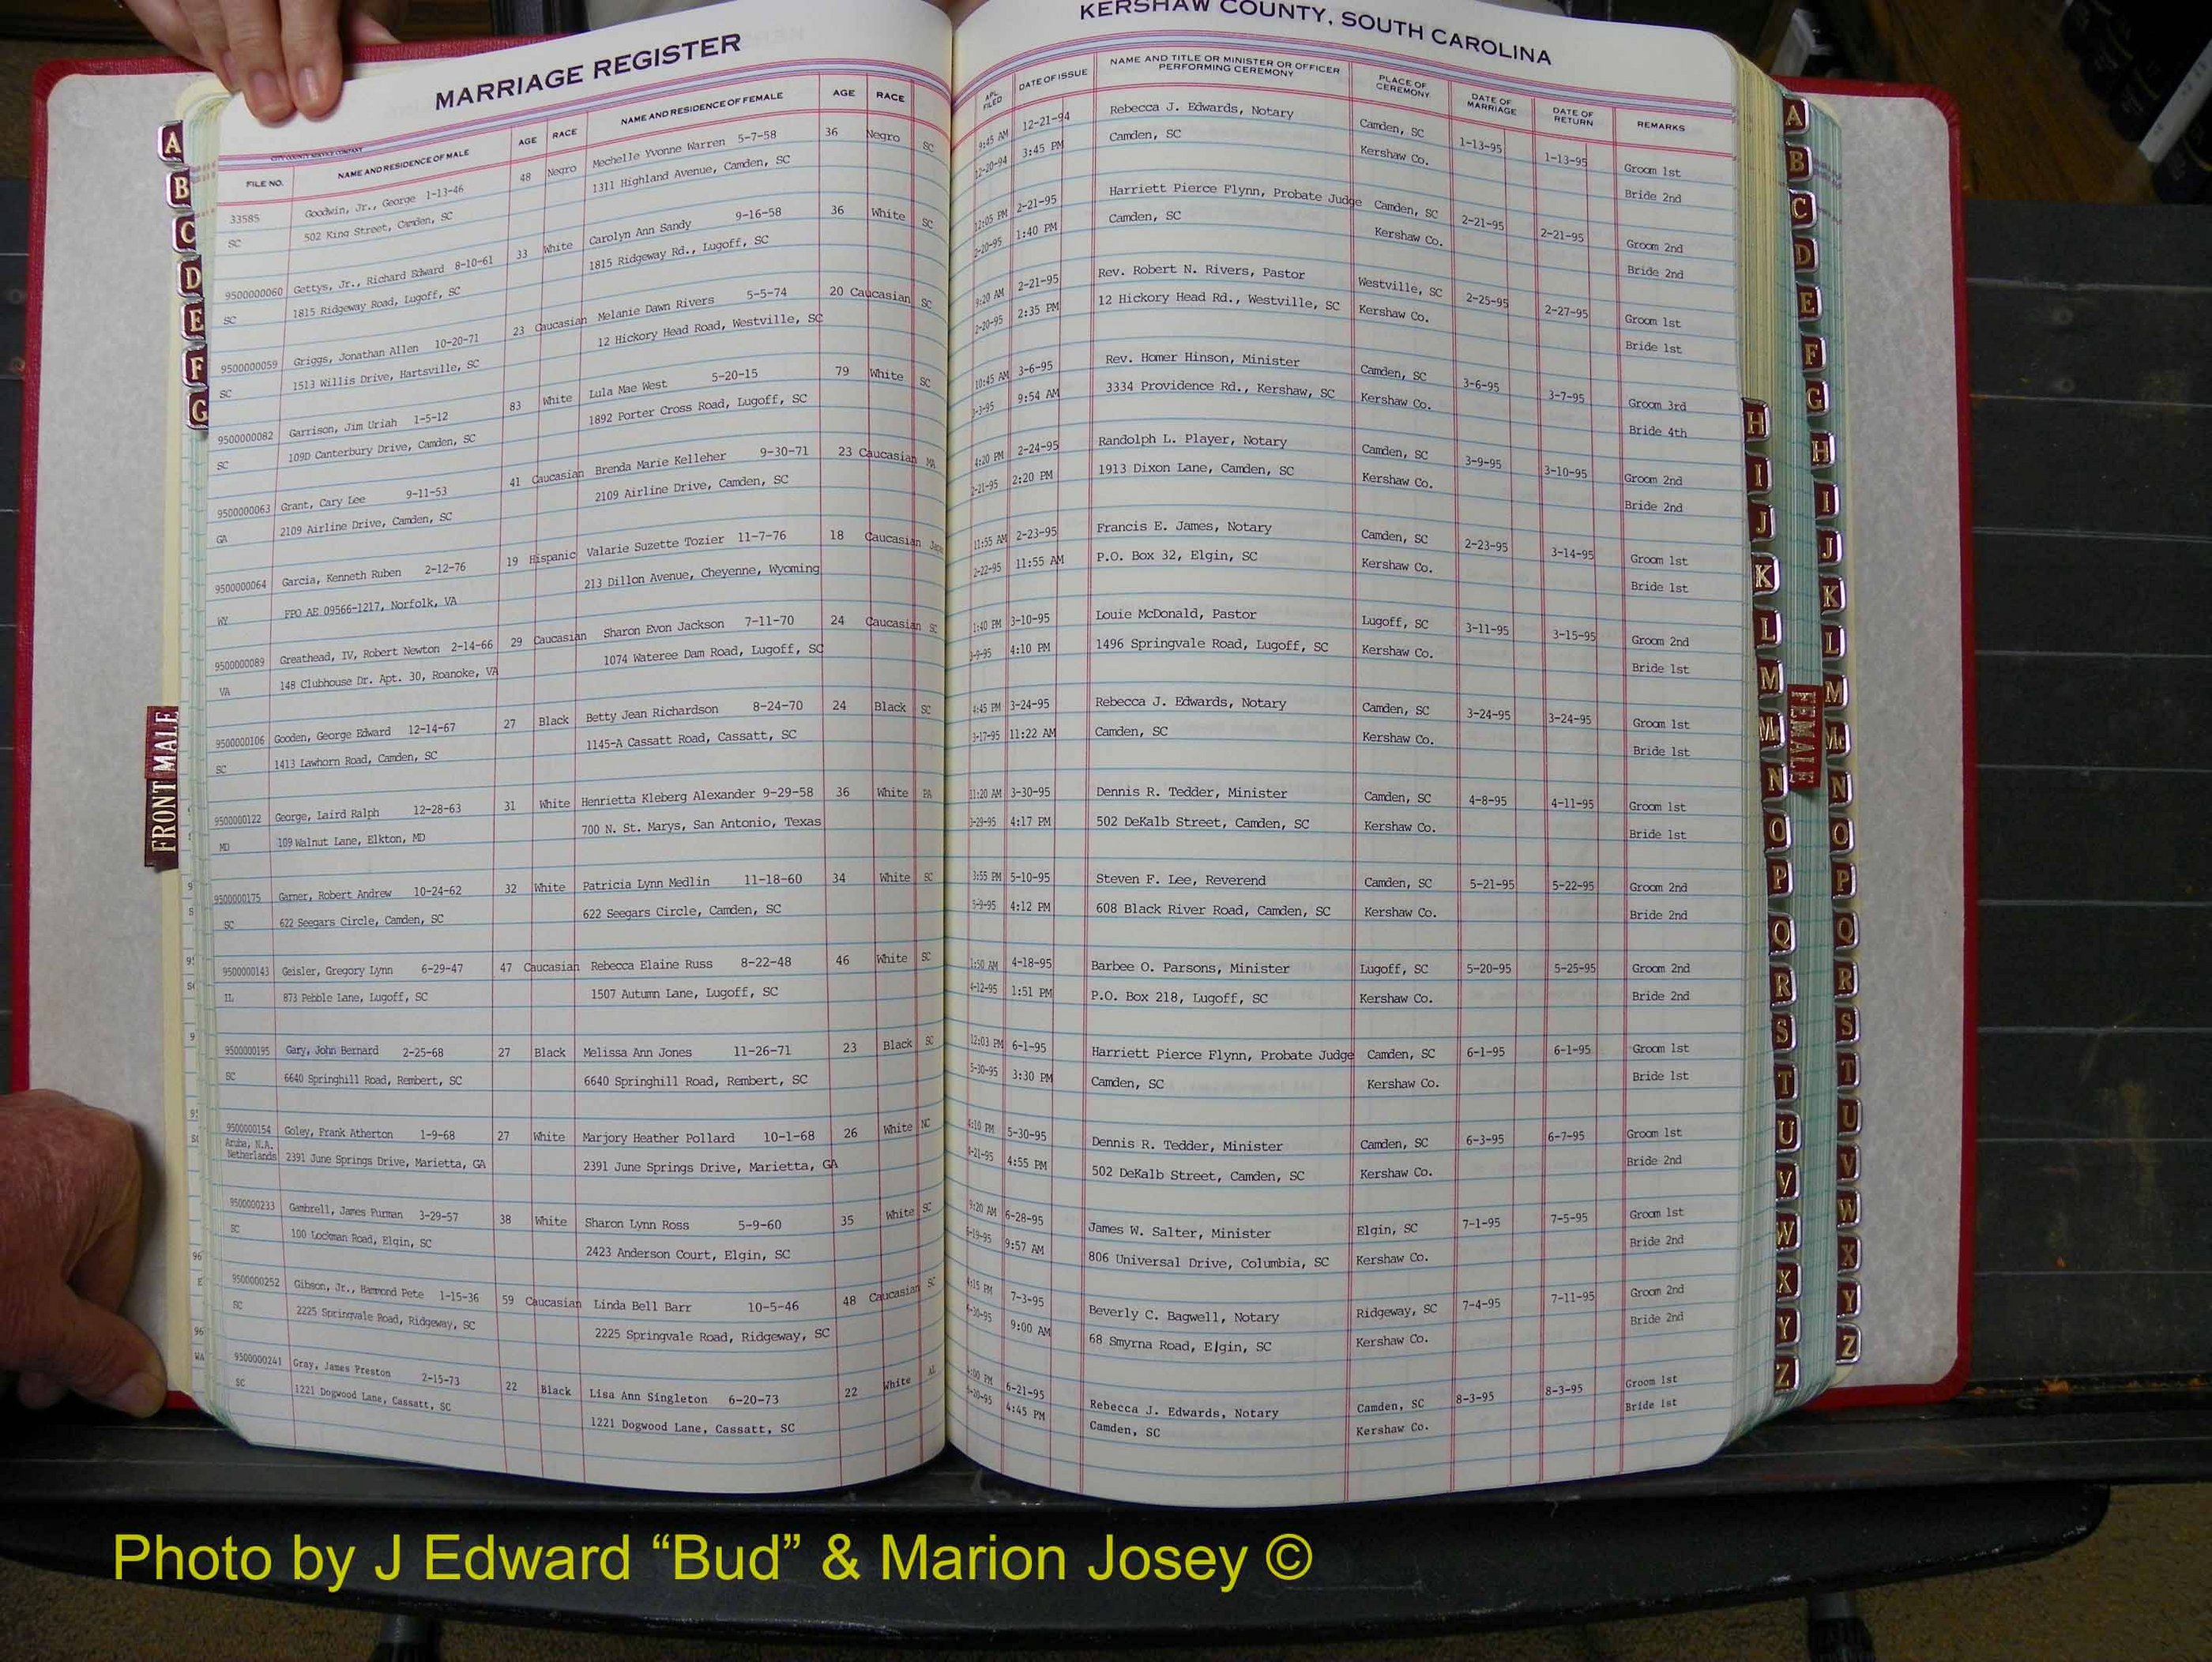 MARRIAGE REGISTER
KERSHAW COUNTY, SOUTH CAROLINA
FILE NO. NAME AND RESIDENCE OF MALE AGE RACE NAME AND RESIDENCE OF FEMALE AGE RACE APL. FILED DATE OF ISSUE NAME AND TITLE OR MINISTER OR OFFICER PERFORMING CEREMONY PLACE OF CEREMONY DATE OF MARRIAGE DATE OF RETURN REMARKS
33585 Goodwin, Jr., George 1-13-46 48 Negro Mechelle Yvonne Warren 5-7-58 36 Negro SC 9:45 AM 12-21-94 Rebecca J. Edwards, Notary Camden, SC 1-13-95 1-13-95 Groom 1st
SC 502 King Street, Camden, SC 1311 Highland Avenue, Camden, SC 12-20-94 3:45 PM Camden, SC Kershaw Co. Bride 2nd
9500000060 Gettys, Jr., Richard Edward 8-10-61 33 White Carolyn Ann Sandy 9-16-58 36 White SC 12:05 PM 2-21-95 Harriett Pierce Flynn, Probate Judge Camden, SC 2-21-95 2-21-95 Groom 2nd
SC 1815 Ridgeway Road, Lugoff, SC 1815 Ridgeway Rd., Lugoff, SC 2-20-95 1:40 PM Camden, SC Kershaw Co. Bride 2nd
9500000059 Griggs, Jonathan Allen 10-20-71 23 Caucasian Melanie Dawn Rivers 5-5-74 20 Caucasian SC 9:20 AM 2-21-95 Rev. Robert N. Rivers, Pastor Westville, SC 2-25-95 2-27-95 Groom 1st
SC 1513 Willis Drive, Hartsville, SC 12 Hickory Head Road, Westville, SC 2-20-95 2:35 PM 12 Hickory Head Rd., Westville, SC Kershaw Co. Bride 1st
9500000082 Garrison, Jim Uriah 1-5-12 83 White Lula Mae West 5-20-15 79 White SC 10:45 AM 3-6-95 Rev. Homer Hinson, Minister Camden, SC 3-6-95 3-7-95 Groom 3rd
SC 109D Canterbury Drive, Camden, SC 1892 Porter Cross Road, Lugoff, SC 3-3-95 9:54 AM 3334 Providence Rd., Kershaw, SC Kershaw Co. Bride 4th
9500000063 Grant, Cary Lee 9-11-53 41 Caucasian Brenda Marie Kelleher 9-30-71 23 Caucasian MA 4:20 PM 2-24-95 Randolph L. Player, Notary Camden, SC 3-9-95 3-10-95 Groom 2nd
GA 2109 Airline Drive, Camden, SC 2109 Airline Drive, Camden, SC 2-21-95 2:20 PM 1913 Dixon Lane, Camden, SC Kershaw Co. Bride 2nd
9500000064 Garcia, Kenneth Ruben 2-12-76 19 Hispanic Valarie Suzette Tozier 11-7-76 18 Caucasian 11:55 AM 2-23-95 Francis E. James, Notary Camden, SC 2-23-95 3-14-95 Groom 1st
WY FPO AE 09566-1217, Norfolk, VA 213 Dillon Avenue, Cheyenne, Wyoming 2-22-95 11:55 AM P.O. Box 32, Elgin, SC Kershaw Co. Bride 1st
9500000089 Greathead, IV, Robert Newton 2-14-66 29 Caucasian Sharon Evon Jackson 7-11-70 24 Caucasian SC 1:40 PM 3-10-95 Louie McDonald, Pastor Lugoff, SC 3-11-95 3-15-95 Groom 2nd
VA 148 Clubhouse Dr. Apt. 30, Roanoke, VA 1074 Wateree Dam Road, Lugoff, SC 3-9-95 4:10 PM 1496 Springvale Road, Lugoff, SC Kershaw Co. Bride 1st
9500000106 Gooden, George Edward 12-14-67 27 Black Betty Jean Richardson 8-24-70 24 Black SC 4:45 PM 3-24-95 Rebecca J. Edwards, Notary Camden, SC 3-24-95 3-24-95 Groom 1st
SC 1413 Lawhorn Road, Camden, SC 1145-A Cassatt Road, Cassatt, SC 3-17-95 11:22 AM Camden, SC Kershaw Co. Bride 1st
9500000122 George, Laird Ralph 12-28-63 31 White Henrietta Kleberg Alexander 9-29-58 36 White PA 11:20 AM 3-30-95 Dennis R. Tedder, Minister Camden, SC 4-8-95 4-11-95 Groom 1st
MD 109 Walnut Lane, Elkton, MD 700 N. St. Marys, San Antonio, Texas 3-29-95 4:17 PM 502 DeKalb Street, Camden, SC Kershaw Co. Bride 1st
9500000175 Garner, Robert Andrew 10-24-62 32 White Patricia Lynn Medlin 11-18-60 34 White SC 3:55 PM 5-10-95 Steven F. Lee, Reverend Camden, SC 5-21-95 5-22-95 Groom 2nd
SC 622 Seegars Circle, Camden, SC 622 Seegars Circle, Camden, SC 5-9-95 4:12 PM 608 Black River Road, Camden, SC Kershaw Co. Bride 2nd
9500000143 Geisler, Gregory Lynn 6-29-47 47 Caucasian Rebecca Elaine Russ 8-22-48 46 White SC 1:50 AM 4-18-95 Barbee O. Parsons, Minister Lugoff, SC 5-20-95 5-25-95 Groom 2nd
IL 873 Pebble Lane, Lugoff, SC 1507 Autumn Lane, Lugoff, SC 4-12-95 1:51 PM P.O. Box 218, Lugoff, SC Kershaw Co. Bride 2nd
9500000195 Gary, John Bernard 2-25-68 27 Black Melissa Ann Jones 11-26-71 23 Black SC 12:03 PM 6-1-95 Harriett Pierce Flynn, Probate Judge Camden, SC 6-1-95 6-1-95 Groom 1st
SC 6640 Springhill Road, Rembert, SC 6640 Springhill Road, Rembert, SC 5-30-95 3:30 PM Camden, SC Kershaw Co. Bride 1st
9500000154 Goley, Frank Atherton 1-9-68 27 White Marjory Heather Pollard 10-1-68 26 White NC 4:10 PM 5-30-95 Dennis R. Tedder, Minister Camden, SC 6-3-95 6-7-95 Groom 1st
Aruba, N.A. Netherlands 2391 June Springs Drive, Marietta, GA 2391 June Springs Drive, Marietta, GA 4-21-95 4:55 PM 502 DeKalb Street, Camden, SC Kershaw Co. Bride 2nd
9500000233 Gambrell, James Furman 3-29-57 38 White Sharon Lynn Ross 5-9-60 35 White SC 9:20 AM 6-28-95 James W. Salter, Minister Elgin, SC 7-1-95 7-5-95 Groom 1st
SC 100 Lockman Road, Elgin, SC 2423 Anderson Court, Elgin, SC 6-19-95 9:57 AM 806 Universal Drive, Columbia, SC Kershaw Co. Bride 2nd
9500000252 Gibson, Jr., Hammond Pete 1-15-36 59 Caucasian Linda Bell Barr 10-5-46 48 Caucasian SC 4:15 PM 7-3-95 Beverly C. Bagwell, Notary Ridgeway, SC 7-4-95 7-11-95 Groom 2nd
SC 2225 Springvale Road, Ridgeway, SC 2225 Springvale Road, Ridgeway, SC 6-30-95 9:00 AM 68 Smyrna Road, Elgin, SC Kershaw Co. Bride 2nd
9500000241 Gray, James Preston 2-15-73 22 Black Lisa Ann Singleton 6-20-73 22 White 4:00 PM 6-21-95 Rebecca J. Edwards, Notary Camden, SC 8-3-95 8-3-95 Groom 1st
SC 1221 Dogwood Lane, Cassatt, SC 1221 Dogwood Lane, Cassatt, SC 6-20-95 4:45 PM Camden, SC Kershaw Co. Bride 1st
A
B
C
D
E
F
G
FRONT MALE
H
I
J
K
L
M
Mc
N
O
P
Q
R
S
T
U
V
W
X
Y
Z
A
B
C
D
E
F
G
H
I
J
K
L
M
Mc
N
O
P
Q
R
S
T
U
V
W
X
Y
Z
FEMALE
Photo by J Edward “Bud” & Marion Josey ©